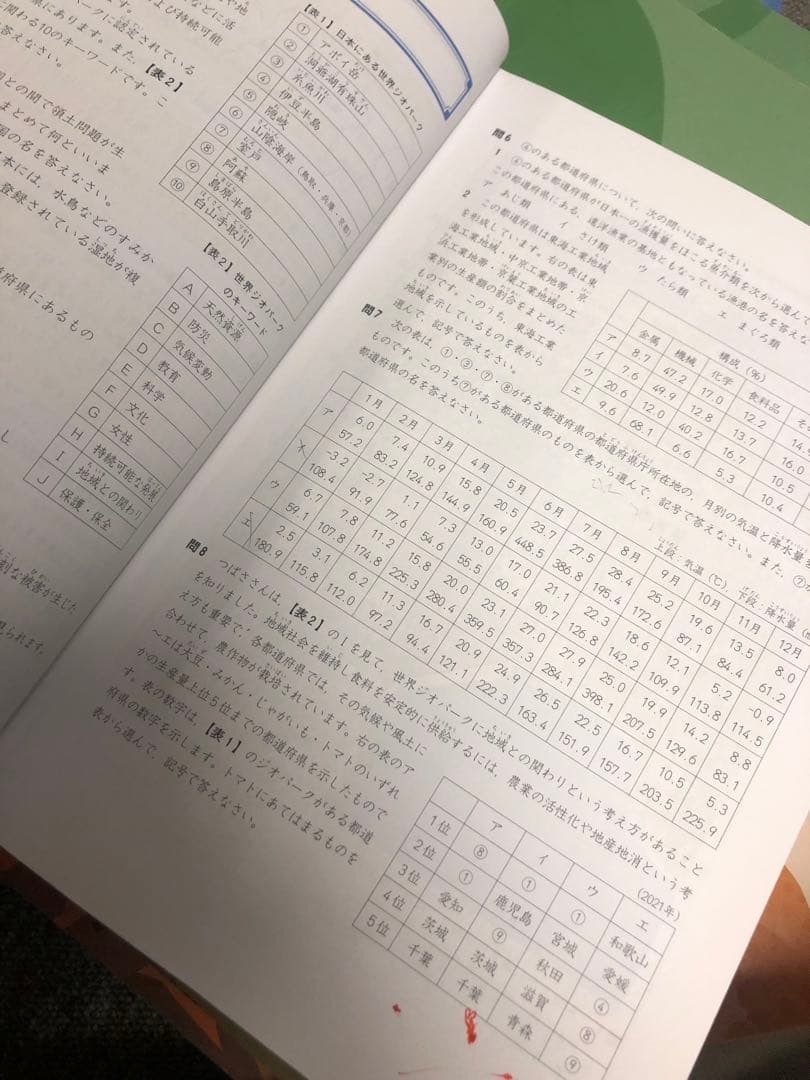 などに活
および持続可能
ークに認定されている
府県にあります。また、【表2】
に関わる10のキーワードです。こ
答えなさい。
国との間で領土問題が生
まとめて何といいま
国の名を答えなさい。
本には、水鳥などのすみか
登録されている湿地が複
府県にあるもの
し
刻な被害が生じた
られます。
【表1】日本にある世界ジオパーク
① アポイ岳
② 洞爺湖有珠山
③ 糸魚川
④ 伊豆半島
⑤ 隠岐
⑥ 山陰海岸(鳥取・兵庫・京都)
⑦ 室戸
⑧ 阿蘇
⑨ 島原半島
⑩ 白山手取川
【表2】世界ジオパーク
のキーワード
A 天然資源
B 防災
C 気候変動
D 教育
E 科学
F 文化
G 女性
H 持続可能な発展
I 地域との関わり
J 保護・保全
問6 ④のある都道府県について、次の問いに答えなさい。
1 ④のある都道府県が日本一の漁獲量をほこる魚介類を次から選んで
この都道府県にある、遠洋漁業の基地ともなっている漁港の名を答えな
ア あじ類 イ さけ類 ウ たら類 エ まぐろ類
2 この都道府県は東海工業地域
を形成しています。右の表は東
海工業地域・中京工業地帯・京
浜工業地帯・京葉工業地域の工
業別の生産額の割合をまとめた
ものです。このうち、東海工業
地域を示しているものを表から
選んで、記号で答えなさい。
構成(%)
金属 機械 化学 食料品 その
ア 8.7 47.2 17.0 12.2 14.
イ 7.6 49.9 12.8 13.7 16.0
ウ 20.6 12.0 40.2 16.7 10.5
エ 9.6 68.1 6.6 5.3 10.4
問7 次の表は、①・③・⑦・⑧がある都道府県の都道府県庁所在地の、月別の気温と降水量を
ものです。このうち⑦がある都道府県のものを表から選んで、記号で答えなさい。また、⑦
都道府県の名を答えなさい。
上段:気温(℃)、下段:降水量(
1月 2月 3月 4月 5月 6月 7月 8月 9月 10月 11月 12月
ア 6.0 7.4 10.9 15.8 20.5 23.7 27.5 28.4 25.2 19.6 13.5 8.0
57.2 83.2 124.8 144.9 160.9 448.5 386.8 195.4 172.6 87.1 84.4 61.2
イ -3.2 -2.7 1.1 7.3 13.0 17.0 21.1 22.3 18.6 12.1 5.2 -0.9
108.4 91.9 77.6 54.6 55.5 60.4 90.7 126.8 142.2 109.9 113.8 114.5
ウ 6.7 7.8 11.2 15.8 20.0 23.1 27.0 27.9 25.0 19.9 14.2 8.8
59.1 107.8 174.8 225.3 280.4 359.5 357.3 284.1 398.1 207.5 129.6 83.1
エ 2.5 3.1 6.2 11.3 16.7 20.9 24.9 26.5 22.5 16.7 10.5 5.3
180.9 115.8 112.0 97.2 94.4 121.1 222.3 163.4 151.9 157.7 203.5 225.9
問8 つばささんは、【表2】のIを見て、世界ジオパークに地域との関わりという考え方があること
を知りました。地域社会を維持し食料を安定的に供給するには、農業の活性化や地産地消という考
え方も重要で、各都道府県では、その気候や風土に
合わせて、農作物が栽培されています。右の表のア
~エは大豆・みかん・じゃがいも・トマトのいずれ
かの生産量上位5位までの都道府県を示したもので
す。表の数字は、【表1】のジオパークがある都道
府県の数字を示します。トマトにあてはまるものを
表から選んで、記号で答えなさい。
(2021年)
ア イ ウ エ
1位 ⑧ ① ① 和歌山
2位 ① 鹿児島 宮城 愛媛
3位 愛知 ⑨ 秋田 ④
4位 茨城 茨城 滋賀 ⑧
5位 千葉 千葉 青森 ⑨